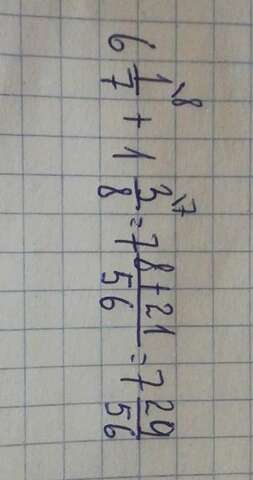 6 1/7 \8 + 1 3/8 \7 = 7 8+21/56 = 7 29/56